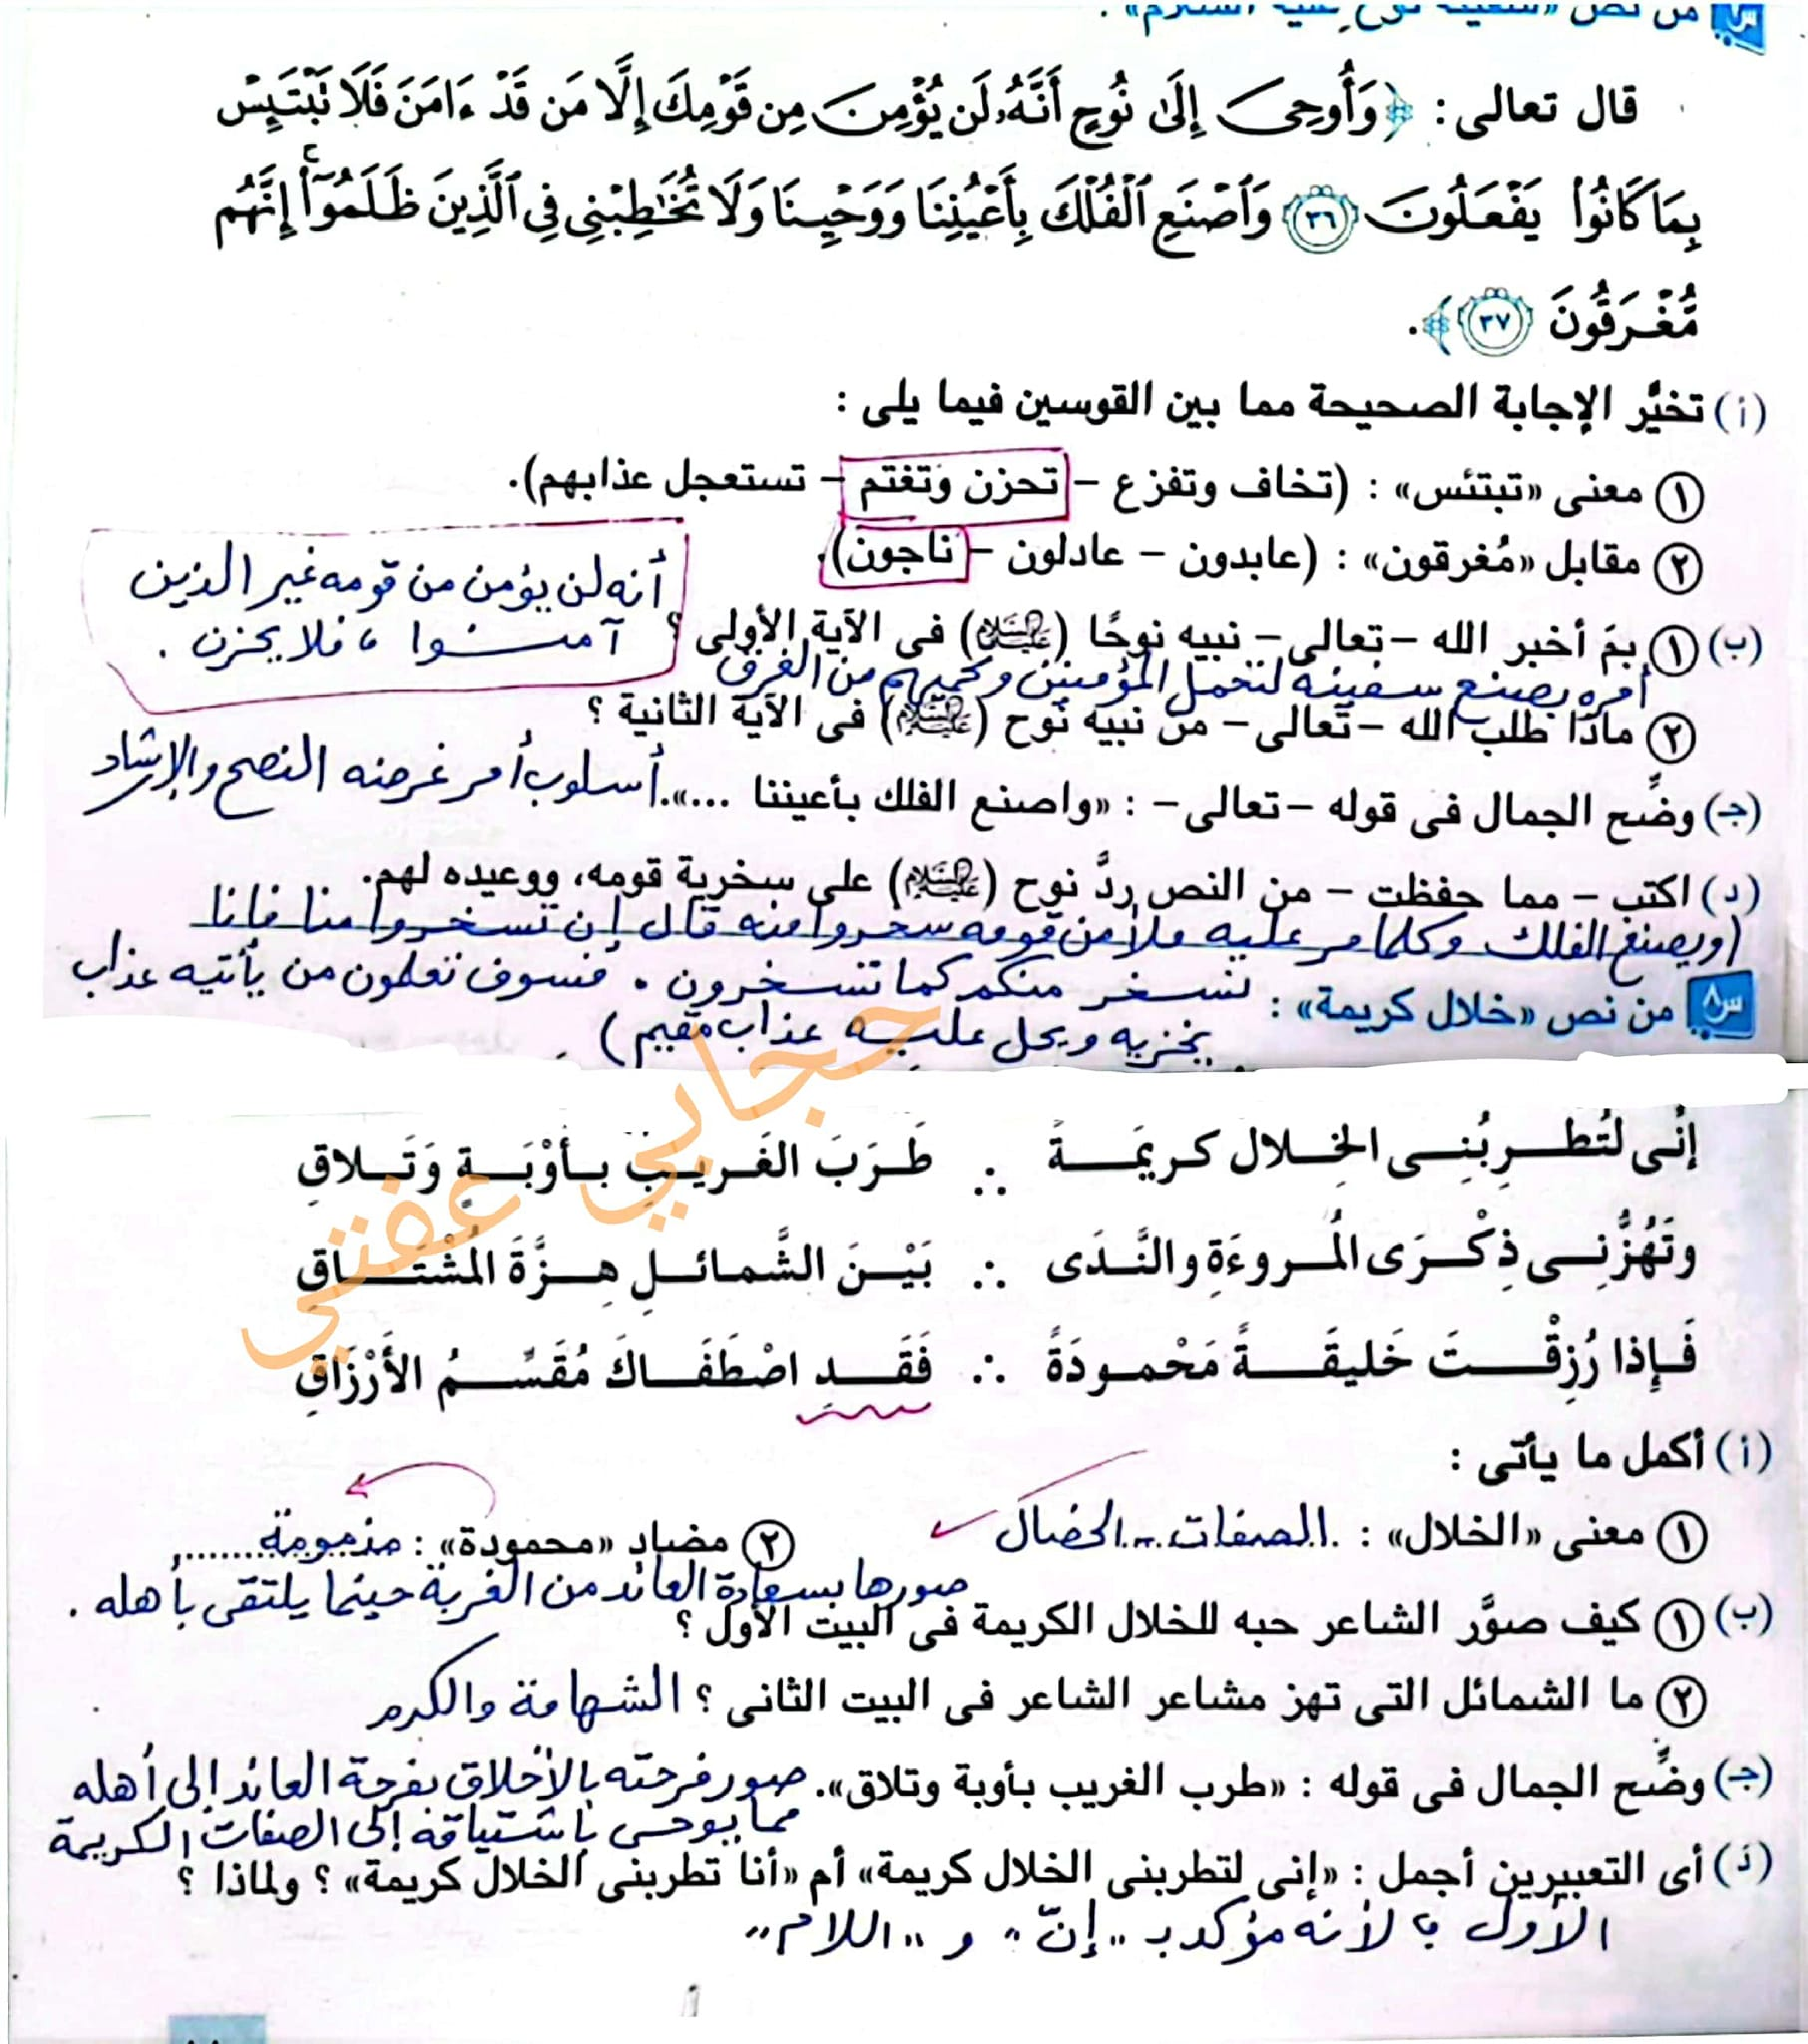 من نص «سفينة نوح عليه السلام».
قال تعالى : ﴿وَأُوحِىَ إِلَىٰ نُوحٍ أَنَّهُۥ لَن يُؤْمِنَ مِن قَوْمِكَ إِلَّا مَن قَدْ ءَامَنَ فَلَا تَبْتَئِسْ
بِمَا كَانُوا۟ يَفْعَلُونَ ٣٦ وَٱصْنَعِ ٱلْفُلْكَ بِأَعْيُنِنَا وَوَحْيِنَا وَلَا تُخَـٰطِبْنِى فِى ٱلَّذِينَ ظَلَمُوٓا۟ ۚ إِنَّهُم
مُّغْرَقُونَ ٣٧﴾.
(أ) تخيَّر الإجابة الصحيحة مما بين القوسين فيما يلى :
١ معنى «تبتئس» : (تخاف وتفزع – تحزن وتغتم – تستعجل عذابهم).
٢ مقابل «مُغرقون» : (عابدون – عادلون – ناجون).
أنه لن يؤمن من قومه غير الذين
آمنوا ، فلا يحزن .
(ب) ١ بمَ أخبر الله –تعالى– نبيه نوحًا (عليه السلام) فى الآية الأولى ؟
أمره بصنع سفينه لتحمل المؤمنين وتحميهم من الغرق
٢ ماذا طلب الله –تعالى– من نبيه نوح (عليه السلام) فى الآية الثانية ؟
(جـ) وضِّح الجمال فى قوله –تعالى– : «واصنع الفلك بأعيننا ...». أسلوب أمر غرضه النصح والإرشاد
(د) اكتب – مما حفظت – من النص ردَّ نوح (عليه السلام) على سخرية قومه، ووعيده لهم.
(ويصنع الفلك وكلما مر عليه ملأ من قومه سخروا منه قال إن تسخروا منا فإنا
نسخر منكم كما تسخرون . فسوف تعلمون من يأتيه عذاب
س٨ من نص «خلال كريمة» :
يخزيه ويحل عليه عذاب مقيم)
حجابي عفتي
إنِّى لتُطـربُنِـى الخِـلال كـريمَـةً ∴ طَـرَبَ الغَـريـبِ بـأوْبَـةٍ وَتَـلاقِ
وتَهُزُّنِـى ذِكْـرَى المُـروءَةِ والنَّـدَى ∴ بَيْـنَ الشَّمائـلِ هِـزَّةَ المُشْتَـاقِ
فَـإِذا رُزِقْـتَ خَليقَـةً مَحْمـودَةً ∴ فَقَـدِ اصْطَفَـاكَ مُقَسِّـمُ الأَرْزَاقِ
(أ) أكمل ما يأتى :
١ معنى «الخلال» : الصفات - الخصال
٢ مضاد «محمودة» : مذمومة
صورها بسعادة العائد من الغربة حينما يلتقى بأهله .
(ب) ١ كيف صوَّر الشاعر حبه للخلال الكريمة فى البيت الأول ؟
٢ ما الشمائل التى تهز مشاعر الشاعر فى البيت الثانى ؟ الشهامة والكرم
(جـ) وضِّح الجمال فى قوله : «طرب الغريب بأوبة وتلاق». صور فرحته بالأخلاق بفرحة العائد إلى أهله
مما يوحى باشتياقه إلى الصفات الكريمة
(د) أى التعبيرين أجمل : «إنى لتطربنى الخلال كريمة» أم «أنا تطربنى الخلال كريمة» ؟ ولماذا ؟
الأول ؛ لأنه مؤكد بـ "إنّ" و "اللام"